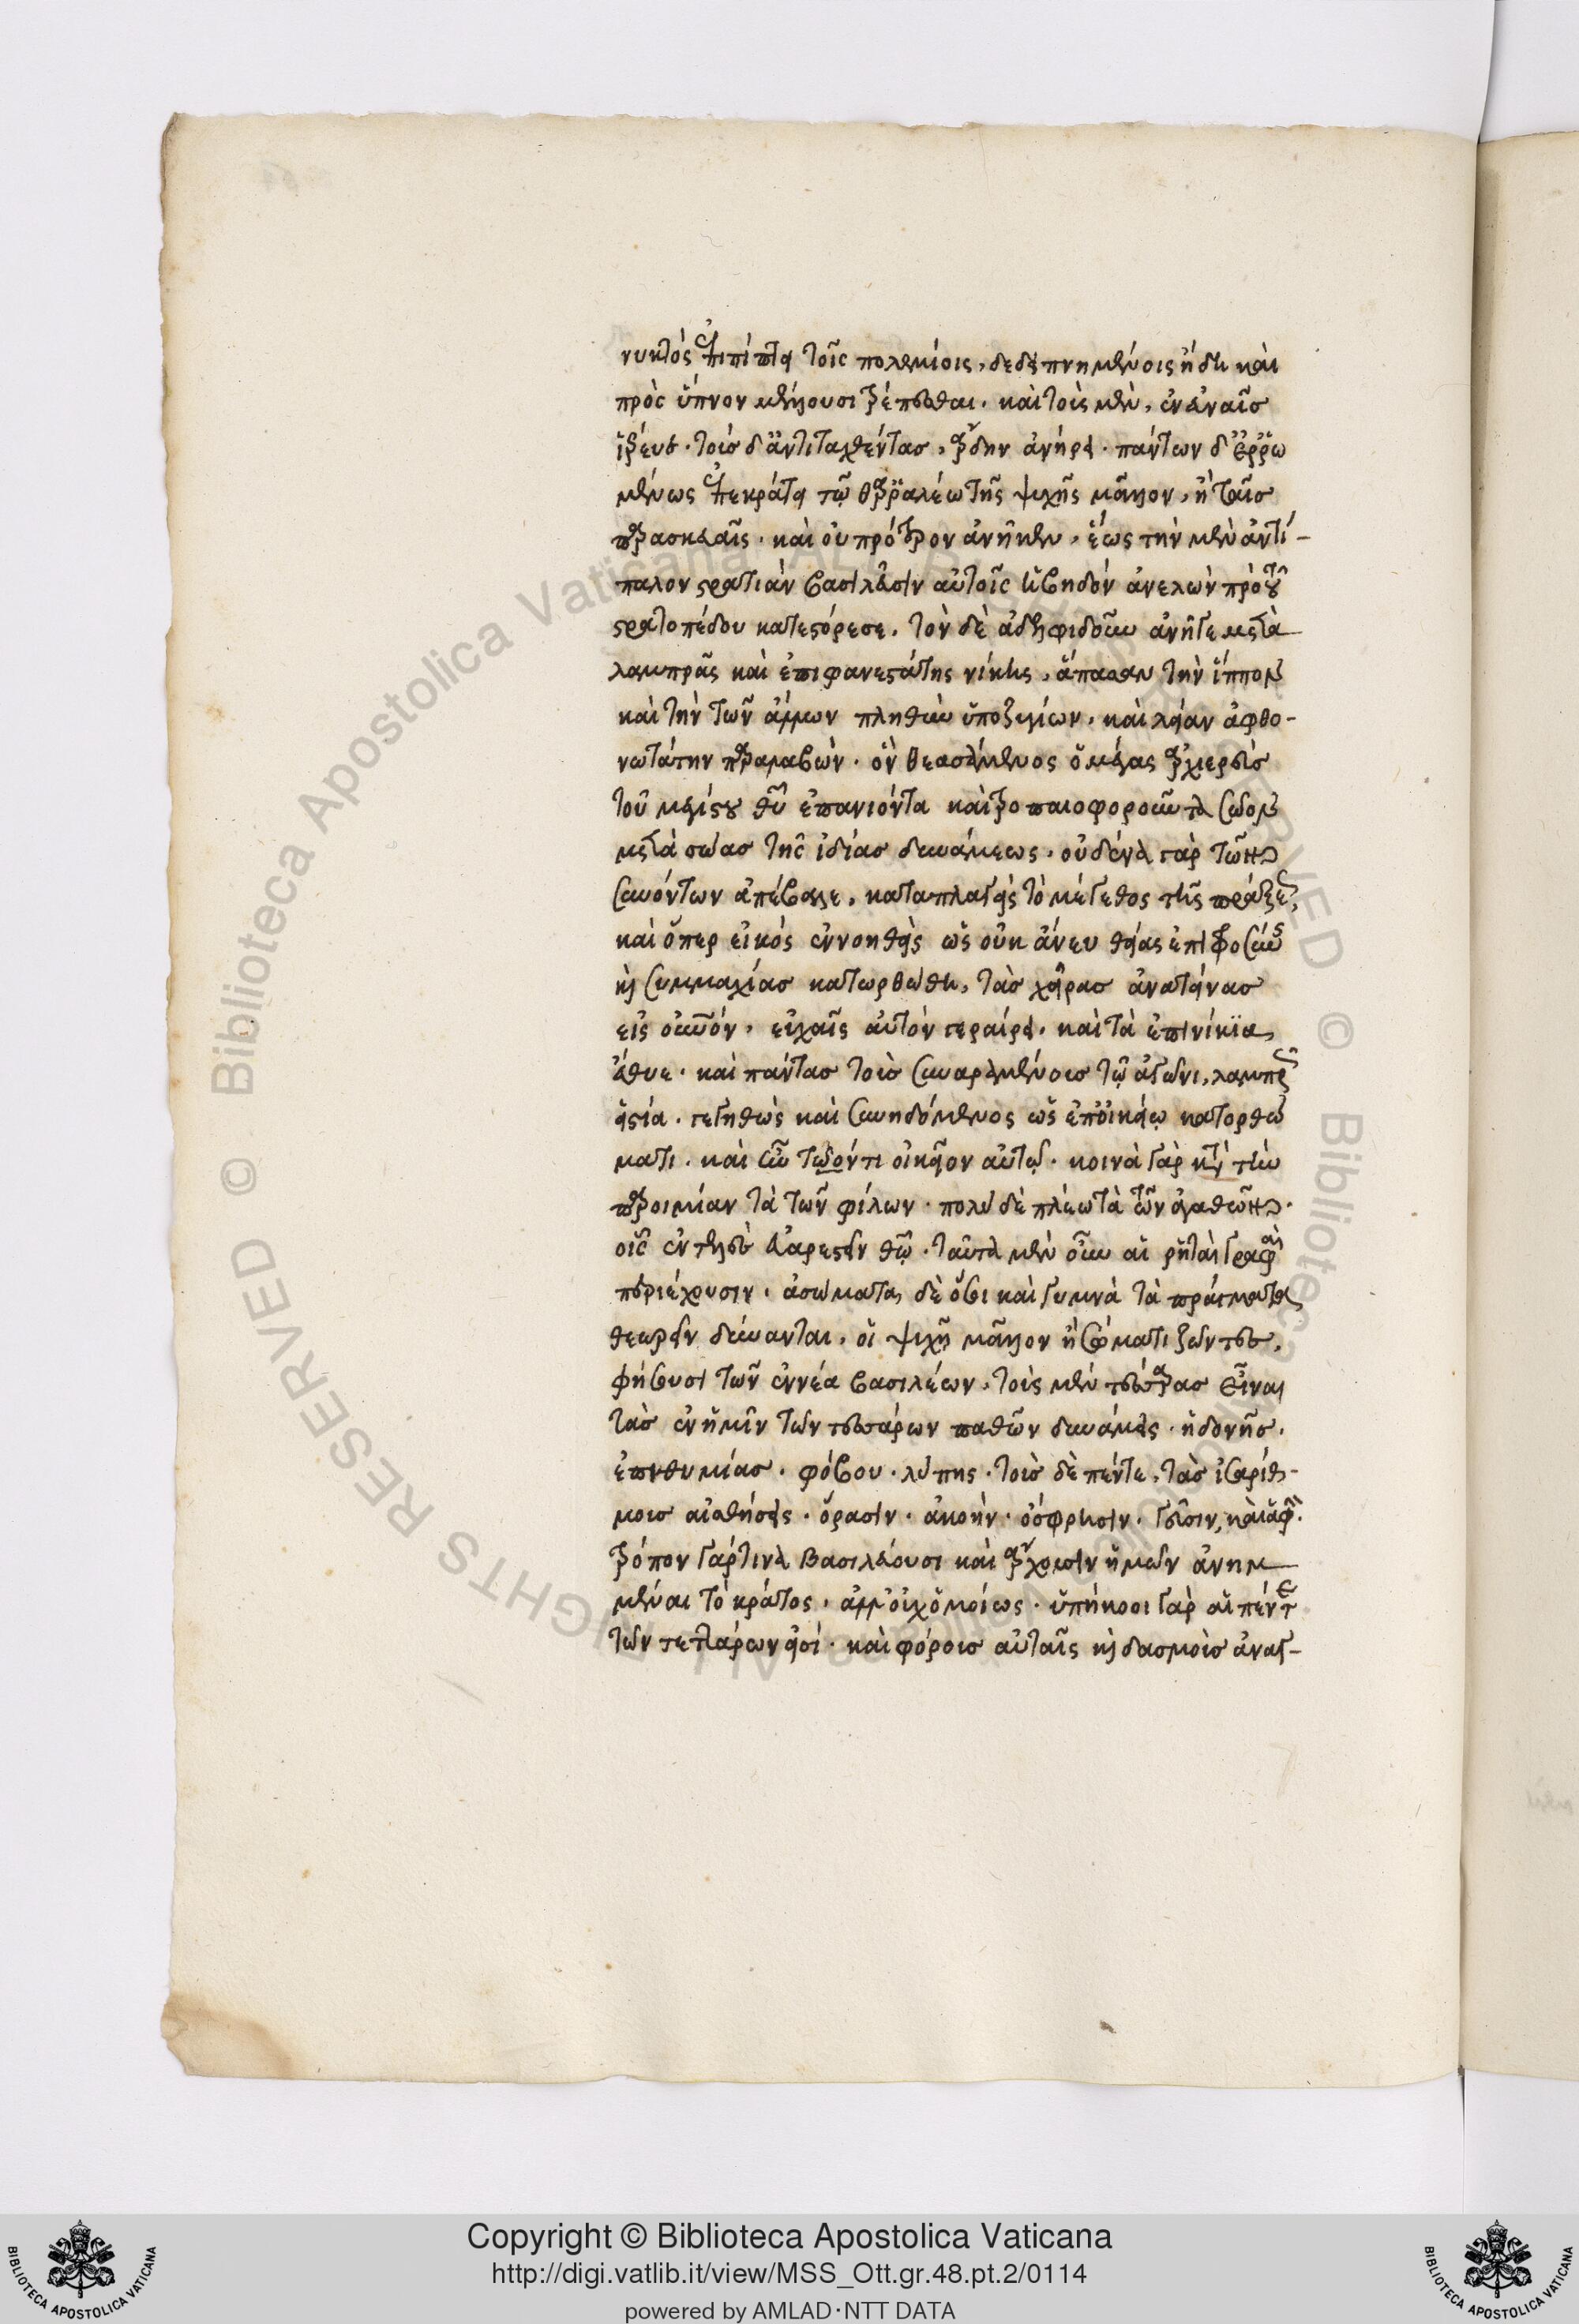 νυκτὸς ἐπιπίπτει τοῖς πολεμίοις, δεδειπνημένοις ἤδη καὶ
πρὸς ὕπνον μέλλουσι τρέπεσθαι. καὶ τοὺς μὲν, ἐν εὐναῖς
ἱέρευε. τοὺς δ' ἀντιταχθέντας, ἄρδην ἀνήρει. πάντων δ' ἐρρω
μένως ἐπεκράτει τῷ θαρραλέῳ τῆς ψυχῆς μᾶλλον, ἢ ταῖς
παρασκευαῖς. καὶ οὐ πρότερον ἀνῆκεν, ἕως τὴν μὲν ἀντί-
παλον στρατιὰν βασιλεῦσιν αὐτοῖς ἡβηδὸν ἀνελὼν πρὸ τοῦ
στρατοπέδου κατεστόρεσε. τὸν δὲ ἀδελφιδοῦν ἀνῆγε μετὰ
λαμπρᾶς καὶ ἐπιφανεστάτης νίκης, ἅπασαν τὴν ἵππον
καὶ τὴν τῶν ἄλλων πληθὺν ὑποζυγίων. καὶ λείαν ἀφθο-
νωτάτην παραλαβών. ὃν θεασάμενος ὁ μέγας ἀρχιερεὺς
τοῦ μεγίστου θυ ἐπανιόντα καὶ τροπαιοφοροῦντα σῶον
μετὰ σώας τῆς ἰδίας δυνάμεως. οὐδένα γὰρ τῶν
συνόντων ἀπέβαλε, καταπλαγεὶς τὸ μέγεθος τῆς πράξεως,
καὶ ὅπερ εἰκὸς ἐννοηθεὶς ὡς οὐκ ἄνευ θείας ἐπιφροσύνης
καὶ συμμαχίας κατωρθώθη, τὰς χεῖρας ἀνατείνας
εἰς οὐνον, εὐχαῖς αὐτὸν γεραίρει. καὶ τὰ ἐπινίκια
ἔθυε. καὶ πάντας τοὺς συναραμένους τῷ ἀγῶνι, λαμπρῶς
εἱστία. γεγηθὼς καὶ συνηδόμενος ὡς ἐπ' οἰκείῳ κατορθώ
ματι. καὶ ἦν τῷ ὄντι οἰκεῖον αὐτῷ. κοινὰ γὰρ κατὰ τὴν
παροιμίαν τὰ τῶν φίλων. πολὺ δὲ πλέω τὰ τῶν ἀγαθῶν.
οἷς ἓν τέλος εὐαρεστεῖν θῶ. ταῦτα μὲν οὖν αἱ ῥηταὶ γραφαὶ
περιέχουσιν. ἀσώματα δὲ ὅσοι καὶ γυμνὰ τὰ πράγματα
θεωρεῖν δύνανται, οἳ ψυχῇ μᾶλλον ἢ σώματι ζῶντες,
φήσουσι τῶν ἐννέα βασιλέων, τοὺς μὲν τέσσαρας εἶναι
τὰς ἐν ἡμῖν τῶν τεσσάρων παθῶν δυνάμεις. ἡδονῆς.
ἐπιθυμίας. φόβου. λύπης. τοὺς δὲ πέντε, τὰς ἰσαρίθ-
μους αἰσθήσεις. ὅρασιν. ἀκοὴν. ὄσφρησιν. γεῦσιν, καὶ ἁφὴν.
τρόπον γάρ τινα βασιλεύουσι καὶ ἄρχουσιν ἡμῶν ἀνημ
μέναι τὸ κράτος, ἀλλ' οὐχ ὁμοίως. ὑπήκοοι γὰρ αἱ πέντε
τῶν τεττάρων εἰσί. καὶ φόρους αὐταῖς καὶ δασμοὺς ἀναγ-
Copyright © Biblioteca Apostolica Vaticana
http://digi.vatlib.it/view/MSS_Ott.gr.48.pt.2/0114
powered by AMLAD·NTT DATA